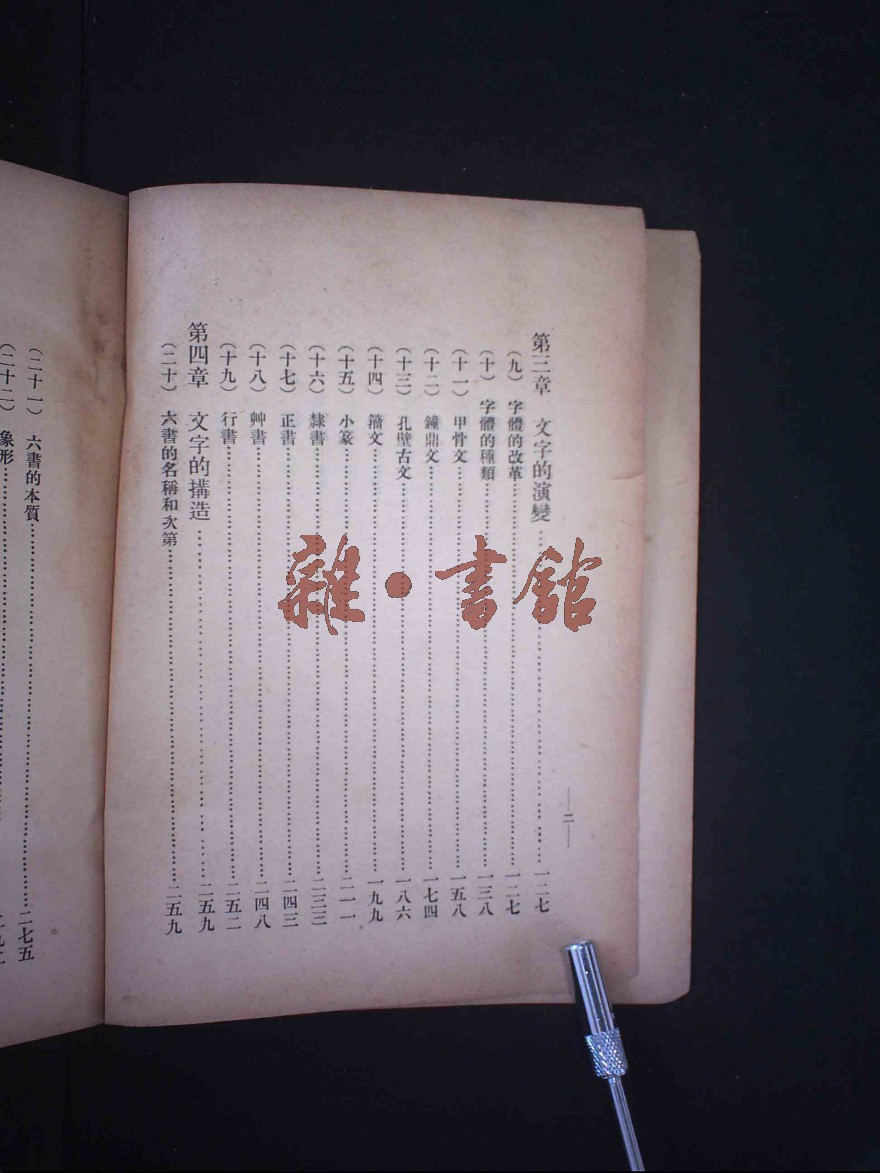 第三章 文字的演變……一二七
（九） 字體的改革……一二七
（十） 字體的種類……一三八
（十一） 甲骨文……一五八
（十二） 鐘鼎文……一七四
（十三） 孔壁古文……一八六
（十四） 籀文……一九九
（十五） 小篆……二一一
（十六） 隸書……二三三
（十七） 正書……二四三
（十八） 艸書……二四八
（十九） 行書……二五二
第四章 文字的搆造……二五九
（二十） 六書的名稱和次第……二五九
—二—
（二十一） 六書的本質……二七五
（二十二） 象形……
雜·書館